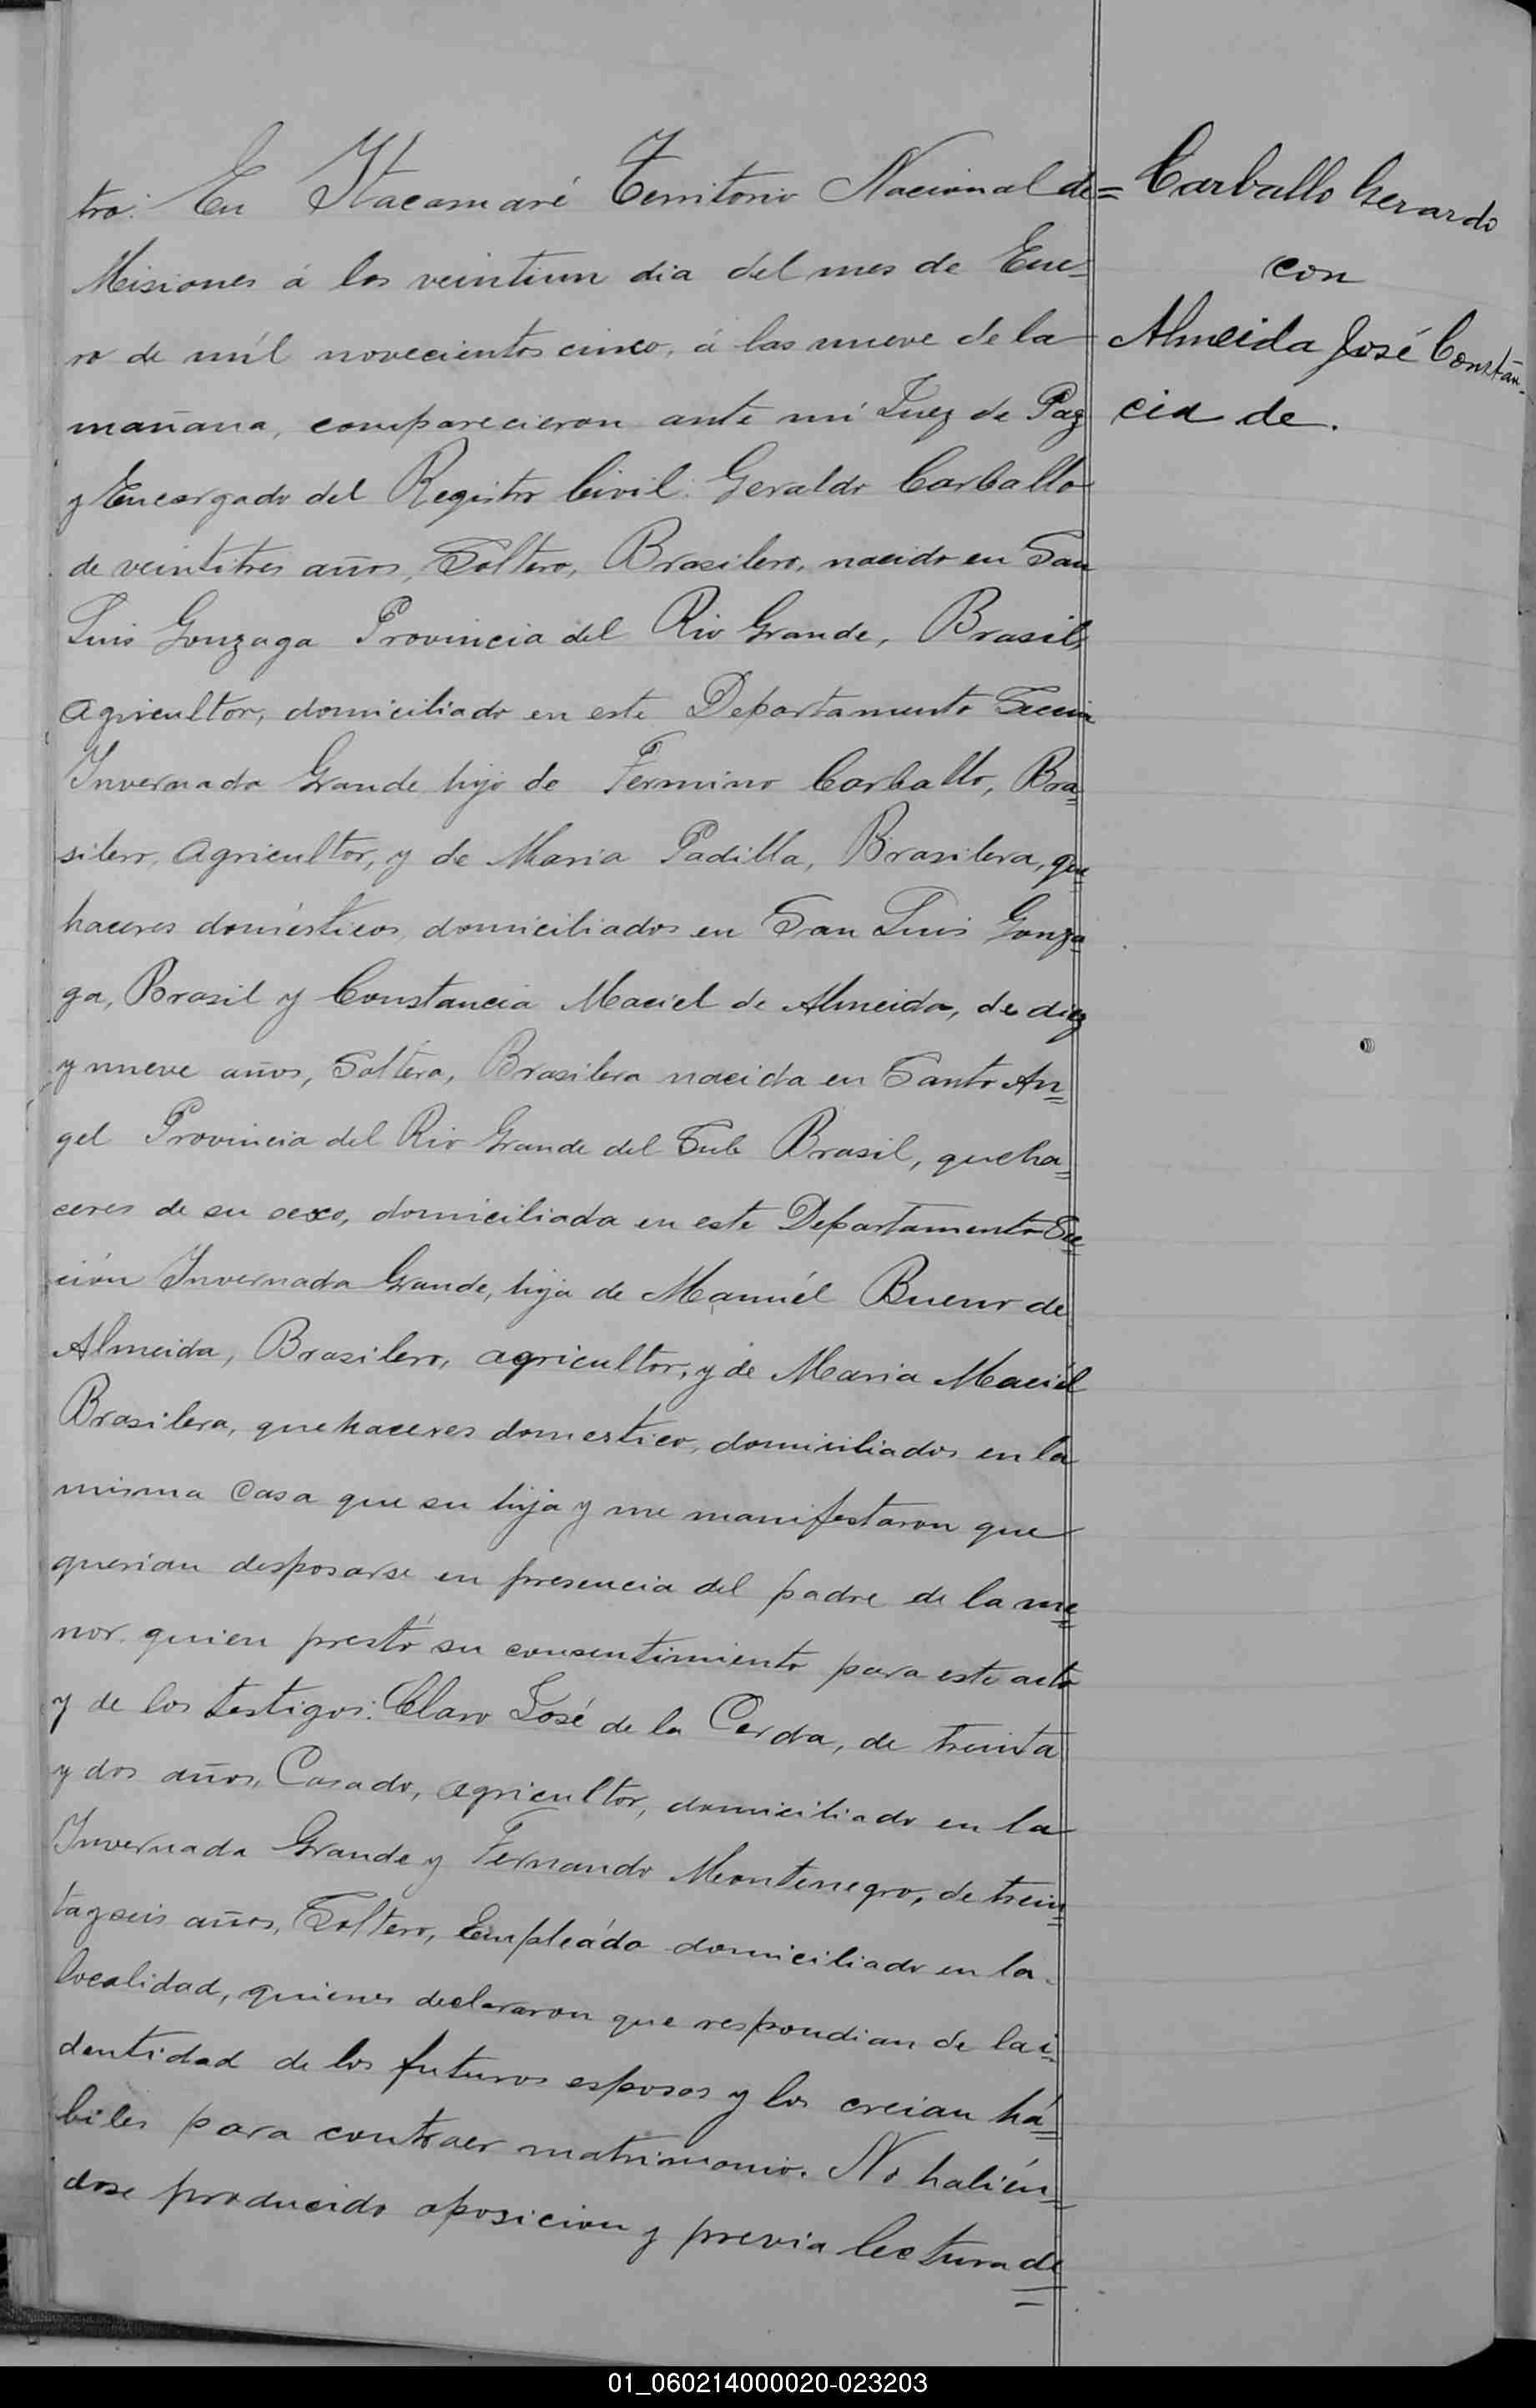 tro: En Itacaruaré Territorio Nacional de=
Misiones á los veintiun dia del mes de Ene=
ro de mil novecientos cinco, á las nueve de la
mañana, comparecieron ante mi Juez de Paz
y Encargado del Registro Civil: Geraldo Carballo
de veintitres años, Soltero, Brasilero, nacido en San
Luis Gonzaga Provincia del Rio Grande, Brasil,
agricultor, domiciliado en este Departamento
Invernada Grande, hijo de Fermino Carballo, Bra=
silero, agricultor, y de Maria Padilla, Brasilera, que=
haceres domésticos, domiciliados en San Luis Gonza=
ga, Brasil y Constancia Maciel de Almeida, de diez
y nueve años, Soltera, Brasilera nacida en Santo An=
gel Provincia del Rio Grande del Sub Brasil, queha=
ceres de su sexo, domiciliada en este Departamento Sec=
ción Invernada Grande, hija de Manuél Bueno de
Almeida, Brasilero, agricultor, y de Maria Maciél
Brasilera, quehaceres domestico, domiciliados en la
misma Casa que su hija y me manifestaron que
querian desposarse en presencia del padre de la me=
nor. quien prestó su consentimiento para este acto
y de los testigos: Claro José de la Cerda, de treinta
y dos años, Casado, agricultor, domiciliado en la
Invernada Grande y Fernando Montenegro, de trein=
tayseis años, Soltero, Empleádo domiciliado en la
localidad, quienes declararon que respondian de la i=
dentidad de los futuros esposos y los creian há=
biles para contraer matrimonio. No habién=
dose producido oposicion y previa lectura de
=
Carballo Gerardo
con
Almeida José Constan-
cia de.
01_060214000020-023203